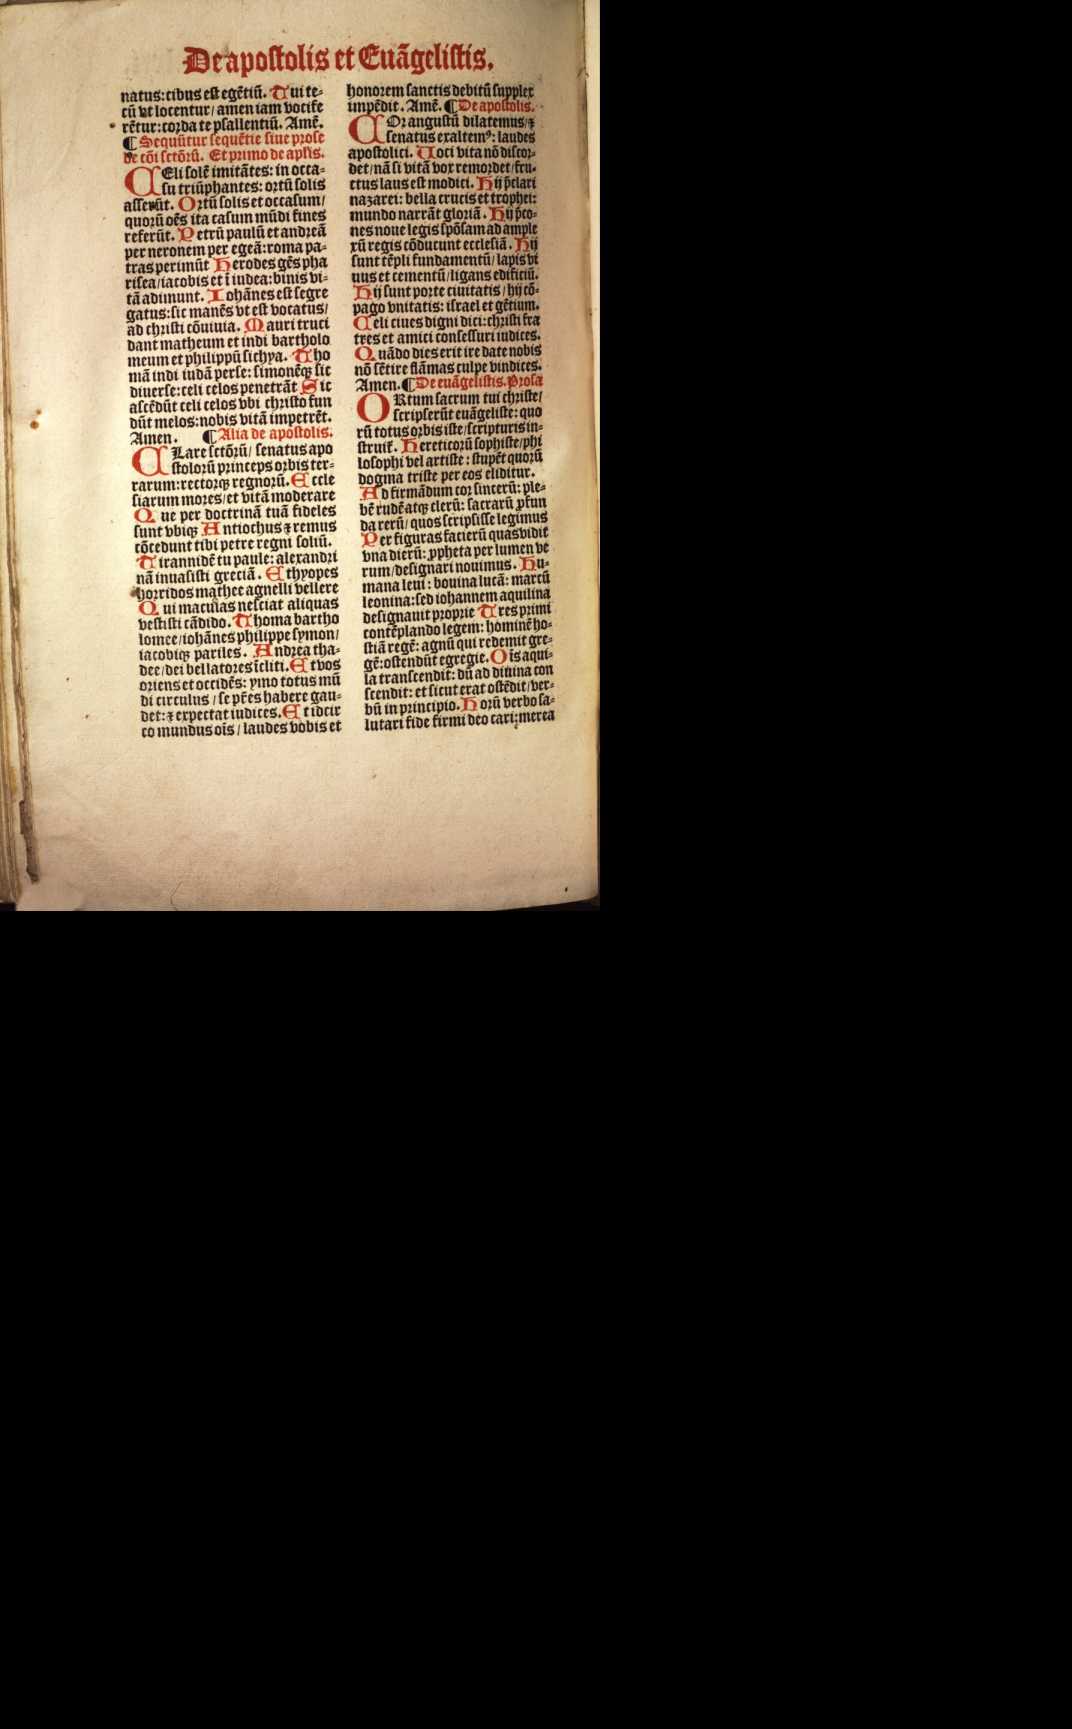 De apostolis et Euãgelistis.
natus: cibus est egẽtiũ. Tui te-
cũ vt locentur/ amen iam vocife
rẽtur: corda te psallentiũ. Amẽ.
¶ Sequũtur sequẽtie siue prose
de cõi sctõrũ. Et primo de aplis.
CEli solẽ imitãtes: in occa-
su triũphantes: ortũ solis
asserũt. Ortũ solis et occasum/
quorũ oẽs ita casum mũdi fines
referũt. Petrũ paulũ et andreã
per neronem per egeã: roma pa-
tras perimũt Herodes gẽs pha
risea/ iacobis et ĩ iudea: binis vi-
tã adimunt. Iohãnes est segre
gatus: sic manẽs vt est vocatus/
ad christi cõuiuia. Mauri truci
dant matheum et indi bartholo
meum et philippũ sichya. Tho
mã indi iudã perse: simonẽqꝫ sic
diuerse: celi celos penetrãt Sic
ascẽdũt celi celos vbi christo fun
dũt melos: nobis vitã impetrẽt.
Amen. ¶ Alia de apostolis.
CLare sctõrũ/ senatus apo
stolorũ princeps orbis ter-
rarum: rectorqꝫ regnorũ. Eccle
siarum mores/ et vitã moderare
Que per doctrinã tuã fideles
sunt vbiqꝫ Antiochus ⁊ remus
cõcedunt tibi petre regni soliũ.
Tirannidẽ tu paule: alexandri
nã inuasisti greciã. Ethyopes
horridos mathee agnelli vellere
Qui maculas nesciat aliquas
vestisti cãdido. Thoma bartho
lomee/ iohãnes philippe symon/
iacobiqꝫ pariles. Andrea tha-
dee/ dei bellatores ĩcliti. Et vos
oriens et occidẽs: ymo totus mũ
di circulus / se pr̃es habere gau-
det: ⁊ expectat iudices. Et idcir
co mundus oĩs / laudes vobis et
honorem sanctis debitũ supplex
impẽdit. Amẽ. ¶ De apostolis.
COr angustũ dilatemus/ ⁊
senatus exaltemꝰ: laudes
apostolici. Uoci vita nõ discor-
det/ nã si vitã vox remordet/ fru-
ctus laus est modici. Hij p̃clari
nazarei: bella crucis et trophei:
mundo narrãt gloriã. Hij p̃co-
nes noue legis spõsam ad ample
xũ regis cõducunt ecclesiã. Hij
sunt tẽpli fundamentũ/ lapis vi
uus et cementũ/ ligans edificiũ.
Hij sunt porte ciuitatis/ hij cõ-
pago vnitatis: israel et gẽtium.
Celi ciues digni dici: christi fra
tres et amici consessuri iudices.
Quãdo dies erit ire date nobis
nõ sẽtire flãmas culpe vindices.
Amen. ¶ De euãgelistis. Prosa
ORtum sacrum tui christe/
scripserũt euãgeliste: quo
rũ totus orbis iste/ scripturis in-
struit̃. Hereticorũ sophiste/ phi
losophi vel artiste: stupẽt quorũ
dogma triste per eos eliditur.
Ad firmãdum cor sincerũ: ple-
bẽ rudẽ atqꝫ clerũ: sacrarũ ꝓfun
da rerũ/ quos scripsisse legimus
Per figuras facierũ quas vidit
vna dierũ: ꝓpheta per lumen ve
rum/ designari nouimus. Hu-
mana leui: bouina lucã: marcũ
leonina: sed iohannem aquilina
designauit proprie Tres primi
contẽplando legem: hominẽ ho-
stiã regẽ: agnũ qui redemit gre-
gẽ: ostendũt egregie. Oĩs aqui-
la transcendit: dũ ad diuina con
scendit: et sicut erat ostẽdit/ ver-
bũ in principio. Horũ verbo sa-
lutari fide firmi deo cari: merea